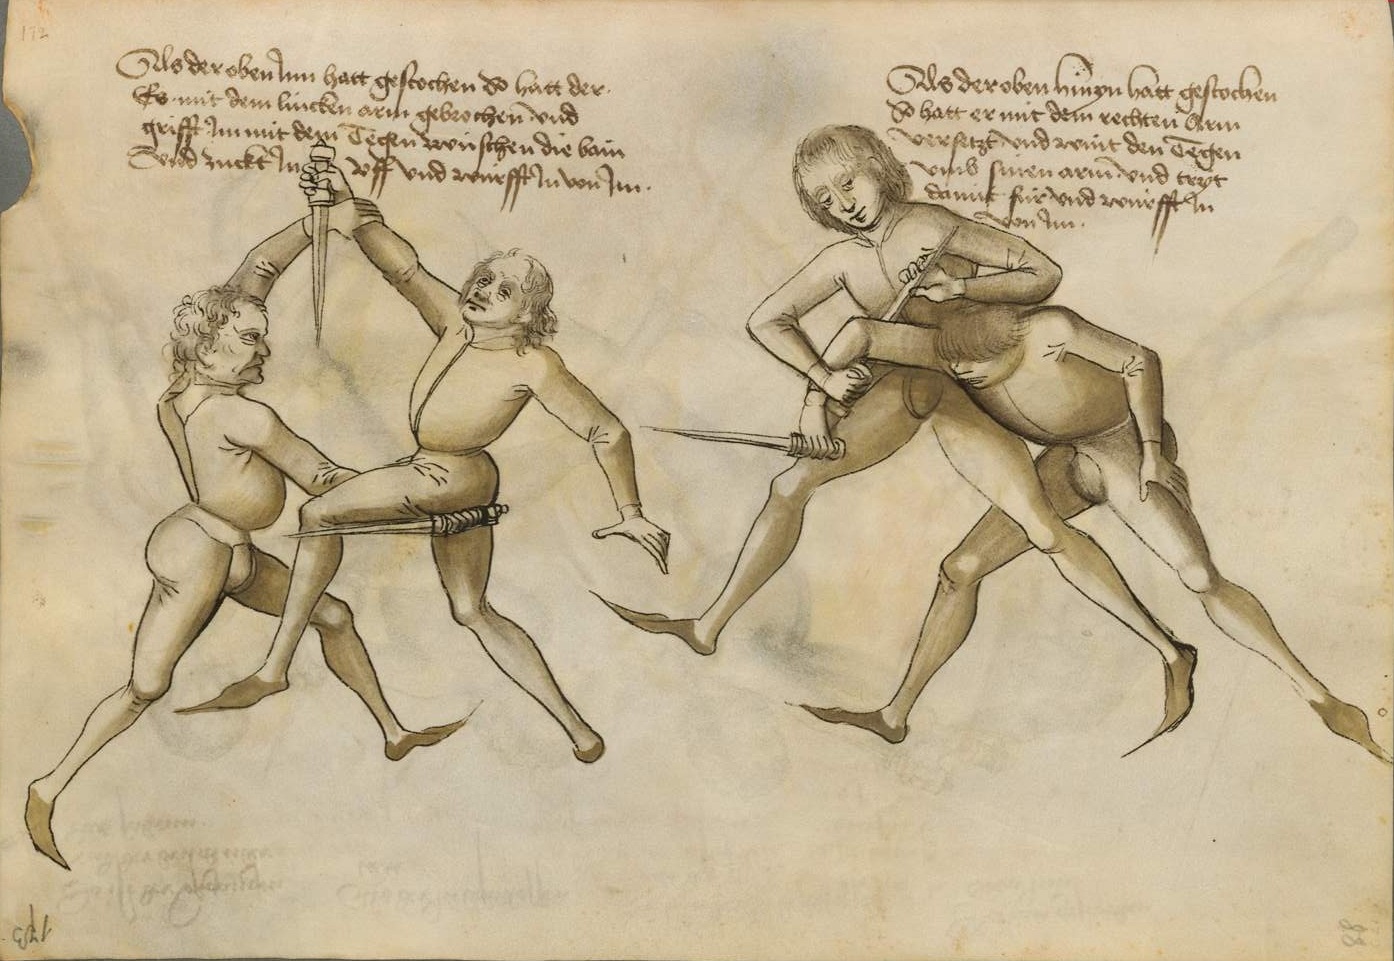 172
Als der oben Inn hatt gestochen So hatt der
Es mit dem lincken arm gebrochen vnd
grifft Im mit dem Tegen zwüschen die bain
Vnd zuckt In vff vnd würfft In von Im.
Als der oben hinyn hatt gestochen
So hatt er mit dem rechten Arm
versetzt vnd wint den Tegen
vmb sinen arm vnd tryt
damit für vnd würfft In
von Im.